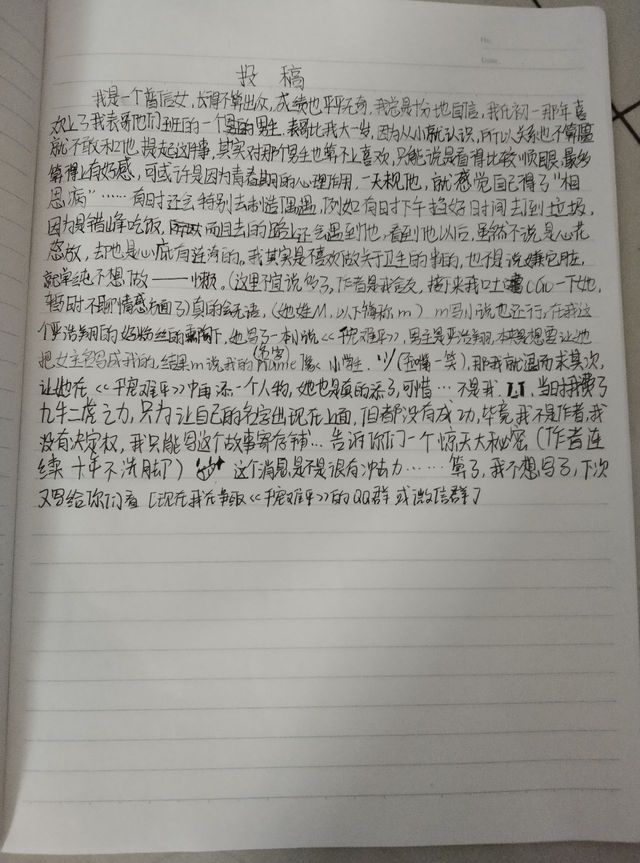 No:
Date:
投稿
我是一个普信女，长得不算出众，成绩也平平无奇，我总是十分地自信，我在初一那年喜
欢上了我表哥他们班的一个男的男生，表哥比我大一岁，因为从小就认识，所以关系也不算尴
就不敢和他提起这件事，其实对那个男生也算不上喜欢，只能说是看得比较顺眼，最多
算得上有好感，可或许是因为青春期的心理作用，一天不见他，就感觉自己得了“相
思病”……有时还会特别去制造偶遇，例如有时下午趁好时间去到垃圾，
因为是错峰吃饭，而且去的路上还会遇到他，看到他以后，虽然不说是心花
怒放，却也是心底有涟漪的。我其实是喜欢做关于卫生的事的，也不是说嫌它脏，
就单纯不想做——懒。（这里不宜说多了，作者是我室友，接下来我吐槽(GO一下她，
暂时不聊情感方面了）真的会无语，（她姓M，以下简称m）m写小说也还行，在我这
个严浩翔的好粉丝的熏陶下，她写了一本小说《千宠难平》，男主是严浩翔，本来是想要让她
把女主名写成我的，结果m说我的name(名字)像小学生，(歪嘴一笑)，那我就退而求其次，
让她在《千宠难平》中再添一个人物，她也是真的添了，可惜…不是我，T.T，当时我费了
九牛二虎之力，只为让自己的名字出现在上面，但都没有成功，毕竟我不是作者，我
没有决定权，我只能写这个故事寄存铺…告诉你们一个惊天大秘密（作者连
续十年不洗脚）这个消息是不是很有冲击力……算了，我不想写了，下次
又写给你们看[现在我在等级《千宠难平》的QQ群或微信群]